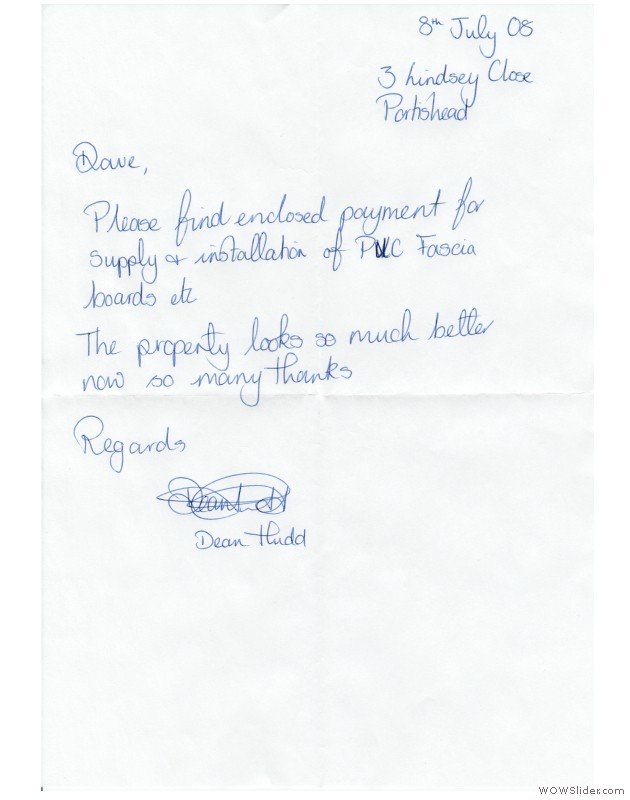 8th July 08
3 Lindsey Close
Portishead
Dave,
Please find enclosed payment for
supply & installation of PVC Fascia
boards etc
The property looks so much better
now so many thanks
Regards
Dean Hudd
WOWSlider.com